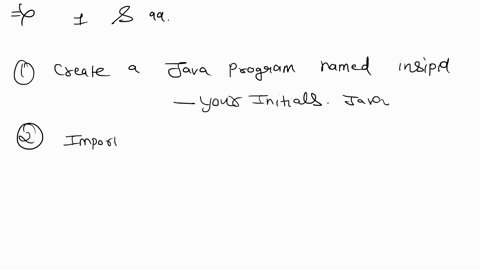 1 S qq.
① Create a Java program named insipd
— your Initials. Java
② Impor